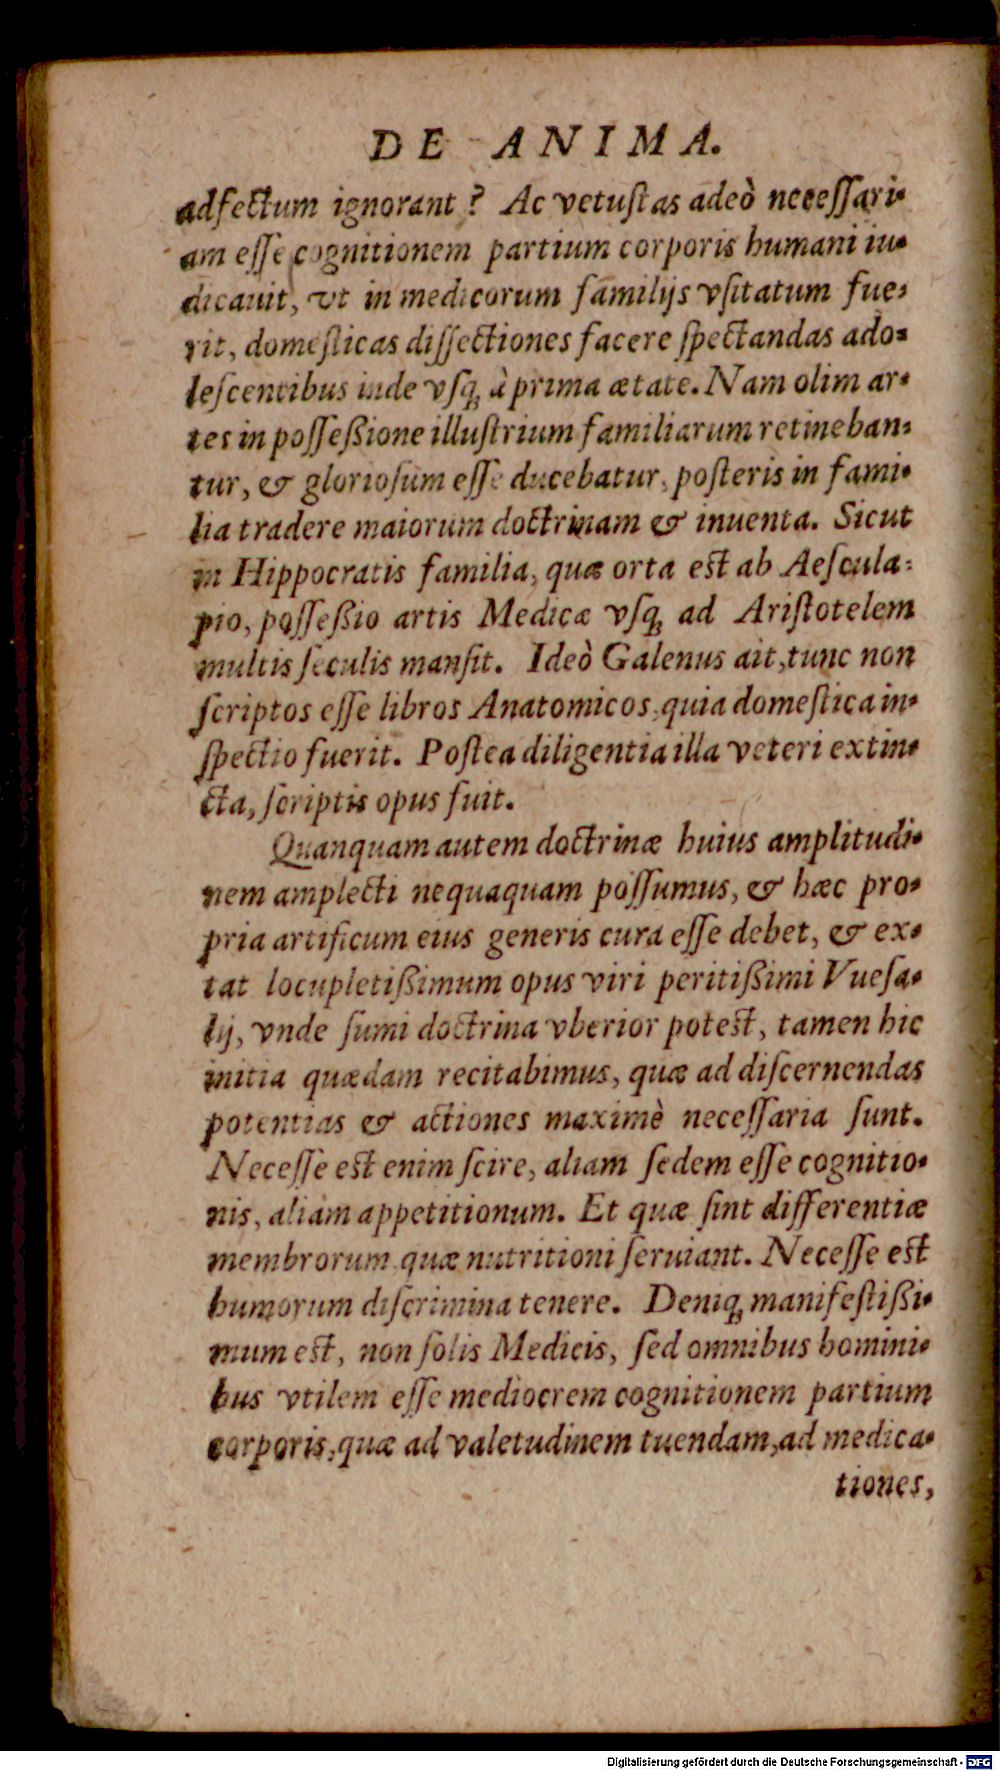 DE ANIMA.
adfectum ignorant? Ac vetuſtas adeò neceſſari-
am eſſe cognitionem partium corporis humani iu-
dicauit, vt in medicorum familijs vſitatum fue-
rit, domeſticas diſſectiones facere ſpectandas ado-
leſcentibus inde vſq; à prima ætate. Nam olim ar-
tes in poſſeßione illuſtrium familiarum retineban-
tur, & glorioſum eſſe ducebatur, poſteris in fami-
lia tradere maiorum doctrinam & inuenta. Sicut
in Hippocratis familia, quæ orta eſt ab Aeſcula-
pio, poſſeßio artis Medicæ vſq; ad Ariſtotelem
multis ſeculis manſit. Ideò Galenus ait, tunc non
ſcriptos eſſe libros Anatomicos, quia domeſtica in-
ſpectio fuerit. Poſtea diligentia illa veteri extin-
cta, ſcriptis opus fuit.
Quanquam autem doctrinæ huius amplitudi-
nem amplecti nequaquam poſſumus, & hæc pro-
pria artificum eius generis cura eſſe debet, & ex-
tat locupletißimum opus viri peritißimi Vueſa-
lij, vnde ſumi doctrina vberior poteſt, tamen hic
initia quædam recitabimus, quæ ad diſcernendas
potentias & actiones maximè neceſſaria ſunt.
Neceſſe eſt enim ſcire, aliam ſedem eſſe cognitio-
nis, aliam appetitionum. Et quæ ſint differentiæ
membrorum quæ nutritioni ſeruiant. Neceſſe eſt
humorum diſcrimina tenere. Deniq; manifeſtißi-
mum eſt, non ſolis Medicis, ſed omnibus homini-
bus vtilem eſſe mediocrem cognitionem partium
corporis, quæ ad valetudinem tuendam, ad medica-
tiones,
Digitalisierung gefördert durch die Deutsche Forschungsgemeinschaft - DFG